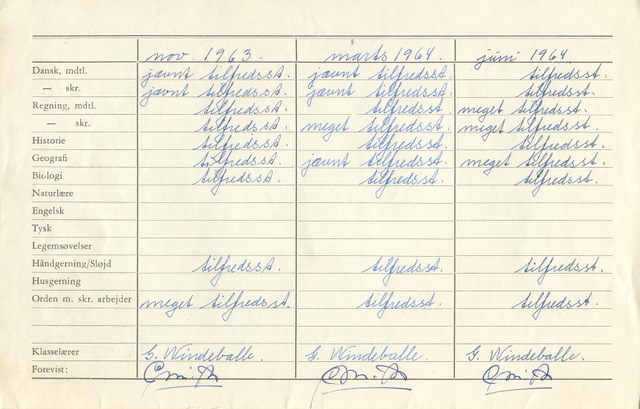 nov. 1963. marts 1964. juni 1964.
Dansk, mdtl. jævnt tilfredsst. jævnt tilfredsst. tilfredsst.
— skr. jævnt tilfredsst. jævnt tilfredsst. tilfredsst.
Regning, mdtl. tilfredsst. tilfredsst. meget tilfredsst.
— skr. tilfredsst. meget tilfredsst. meget tilfredsst.
Historie tilfredsst. tilfredsst. tilfredsst.
Geografi tilfredsst. jævnt tilfredsst. meget tilfredsst.
Biologi tilfredsst. tilfredsst. tilfredsst.
Naturlære
Engelsk
Tysk
Legemsøvelser
Håndgerning/Sløjd tilfredsst. tilfredsst. tilfredsst.
Husgerning
Orden m. skr. arbejder meget tilfredsst. tilfredsst. tilfredsst.
Klasselærer G. Windeballe. G. Windeballe. G. Windeballe.
Forevist: